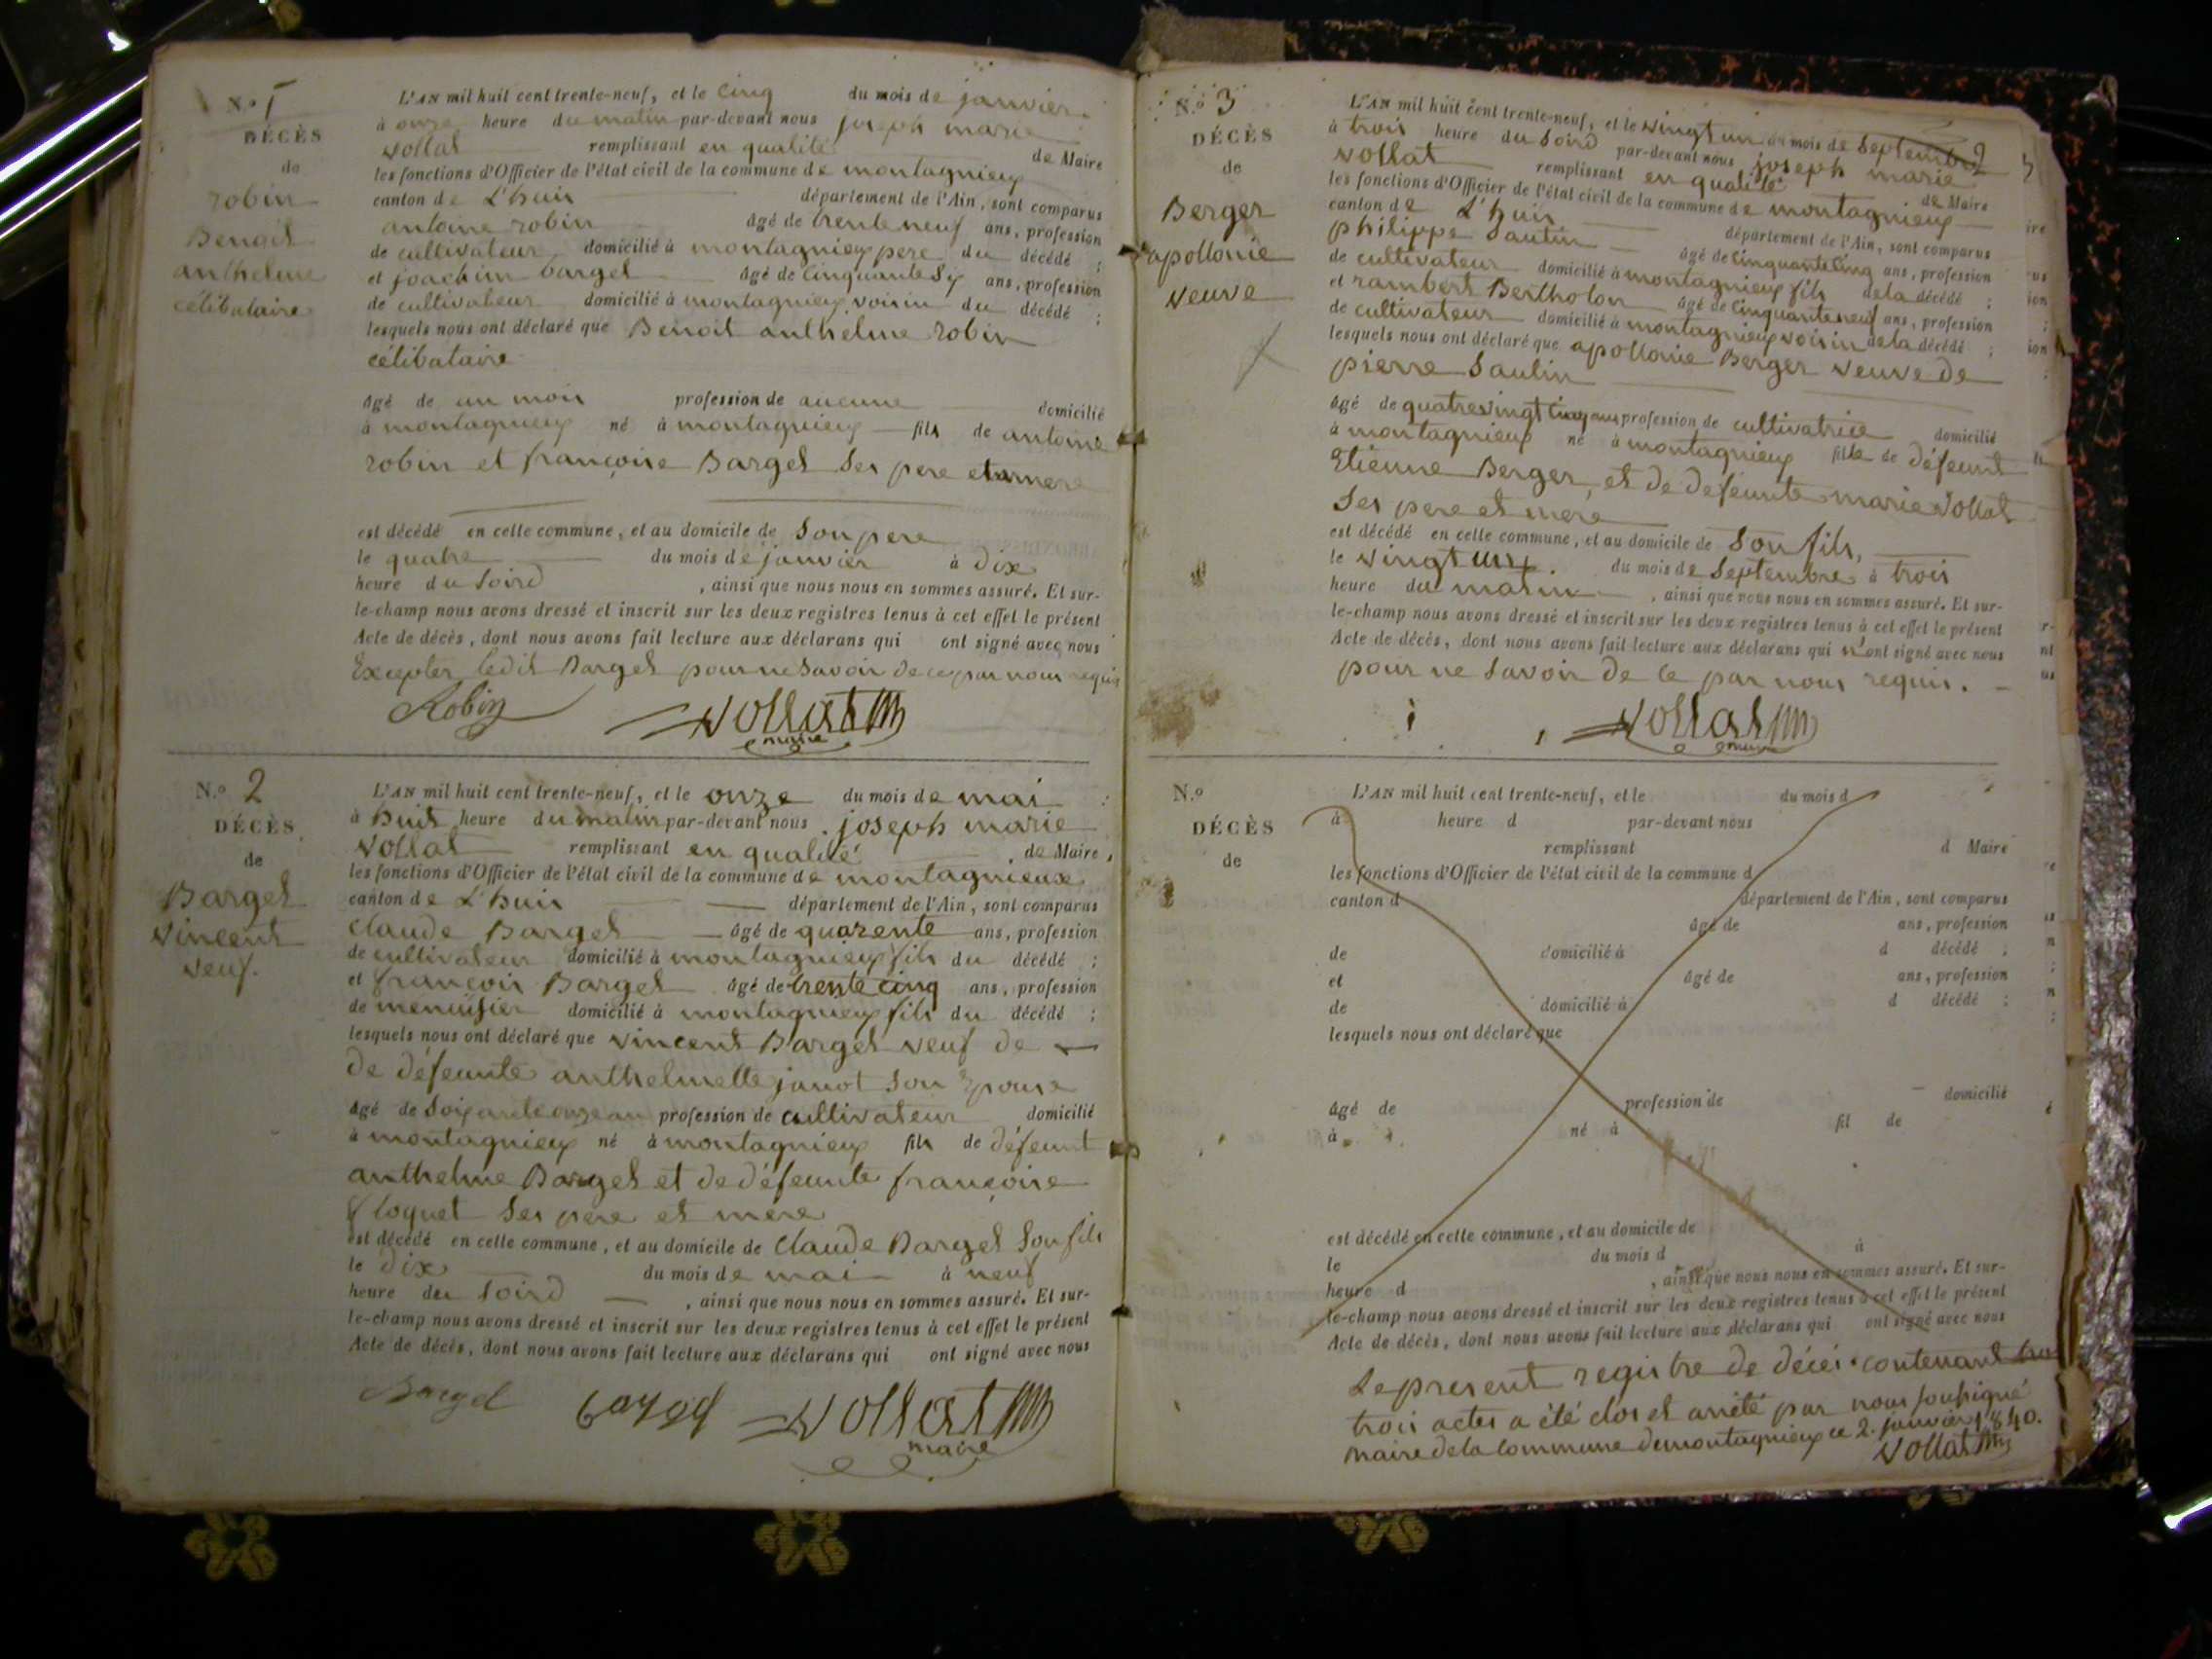 N.o 1
DÉCÈS
de
robin
Benoit
anthelme
célibataire
L'AN mil huit cent trente-neuf, et le cinq du mois de janvier
à onze heure du matin par-devant nous joseph marie
vollat remplissant en qualité de Maire
les fonctions d'Officier de l'état civil de la commune de montagnieux
canton de L'huis département de l'Ain, sont comparus
antoine robin âgé de trente neuf ans, profession
de cultivateur domicilié à montagnieux pere du décédé ;
et joachim bargel âgé de cinquante six ans, profession
de cultivateur domicilié à montagnieux voisin du décédé ;
lesquels nous ont déclaré que Benoit anthelme robin
célibataire
âgé de un mois profession de aucune domicilié
à montagnieux né à montagnieux fils de antoine
robin et françoise Bargel ses pere et mere
est décédé en cette commune, et au domicile de son pere
le quatre du mois de janvier à dix
heure du soird , ainsi que nous nous en sommes assuré. Et sur-
le-champ nous avons dressé et inscrit sur les deux registres tenus à cet effet le présent
Acte de décès, dont nous avons fait lecture aux déclarans qui ont signé avec nous
Excepter ledit Bargel pour ne savoir de ce par nous requis
Robin vollat
maire
N.o 2
DÉCÈS
de
Bargel
vincent
veuf.
L'AN mil huit cent trente-neuf, et le onze du mois de mai
à huit heure du matin par-devant nous joseph marie
vollat remplissant en qualité de Maire,
les fonctions d'Officier de l'état civil de la commune de montagnieux
canton de L'huis département de l'Ain, sont comparus
claude Bargel âgé de quarente ans, profession
de cultivateur domicilié à montagnieux fils du décédé ;
et françois Bargel âgé de trente cinq ans, profession
de menuisier domicilié à montagnieux fils du décédé ;
lesquels nous ont déclaré que vincent Bargel veuf de
de défeunte anthelmette janot son Epouse
âgé de soixante onze an profession de cultivateur domicilié
à montagnieux né à montagnieux fils de défeunt
anthelme Bargel et de défeunte françoise
floquet ses pere et mere
est décédé en cette commune, et au domicile de claude Bargel son fils
le dix du mois de mai à neuf
heure du soird , ainsi que nous nous en sommes assuré. Et sur-
le-champ nous avons dressé et inscrit sur les deux registres tenus à cet effet le présent
Acte de décès, dont nous avons fait lecture aux déclarans qui ont signé avec nous
Bargel bargel vollat
maire
N.o 3
DÉCÈS
de
Berger
apollonie
veuve
L'AN mil huit cent trente-neuf, et le vingt un du mois de septembre
à trois heure du soird par-devant nous joseph marie
vollat remplissant en qualité de Maire
les fonctions d'Officier de l'état civil de la commune de montagnieux
canton de L'huis département de l'Ain, sont comparus
philippe Sautin âgé de cinquante cinq ans, profession
de cultivateur domicilié à montagnieux fils de la décédé ;
et rambert Bertholon âgé de cinquante neuf ans, profession
de cultivateur domicilié à montagnieux voisin de la décédé ;
lesquels nous ont déclaré que apollonie Berger veuve de
pierre Sautin
âgé de quatrevingt cinq ans profession de cultivatrice domicilié
à montagnieux né à montagnieux fille de défeunt
Etienne Berger, et de defeunte marie vollat
ses pere et mere
est décédé en cette commune, et au domicile de son fils,
le vingt un. du mois de septembre à trois
heure du matin , ainsi que nous nous en sommes assuré. Et sur-
le-champ nous avons dressé et inscrit sur les deux registres tenus à cet effet le présent
Acte de décès, dont nous avons fait lecture aux déclarans qui n'ont signé avec nous
pour ne savoir de ce par nous requis.
vollat
maire
N.o
DÉCÈS
de
L'AN mil huit cent trente-neuf, et le du mois d
à heure d par-devant nous
remplissant d Maire
les fonctions d'Officier de l'état civil de la commune d
canton d département de l'Ain, sont comparus
âgé de ans, profession
de domicilié à d décédé ;
et âgé de ans, profession
de domicilié à d décédé ;
lesquels nous ont déclaré que
âgé de profession de domicilié
à né à fil de
est décédé en cette commune, et au domicile de
le du mois d à
heure d , ainsi que nous nous en sommes assuré. Et sur-
le-champ nous avons dressé et inscrit sur les deux registres tenus à cet effet le présent
Acte de décès, dont nous avons fait lecture aux déclarans qui ont signé avec nous
Le present registre de décès contenant
trois actes a été clos et arrêté par nous soussigné
maire de la commune de montagnieux ce 2. janvier 1840.
vollat